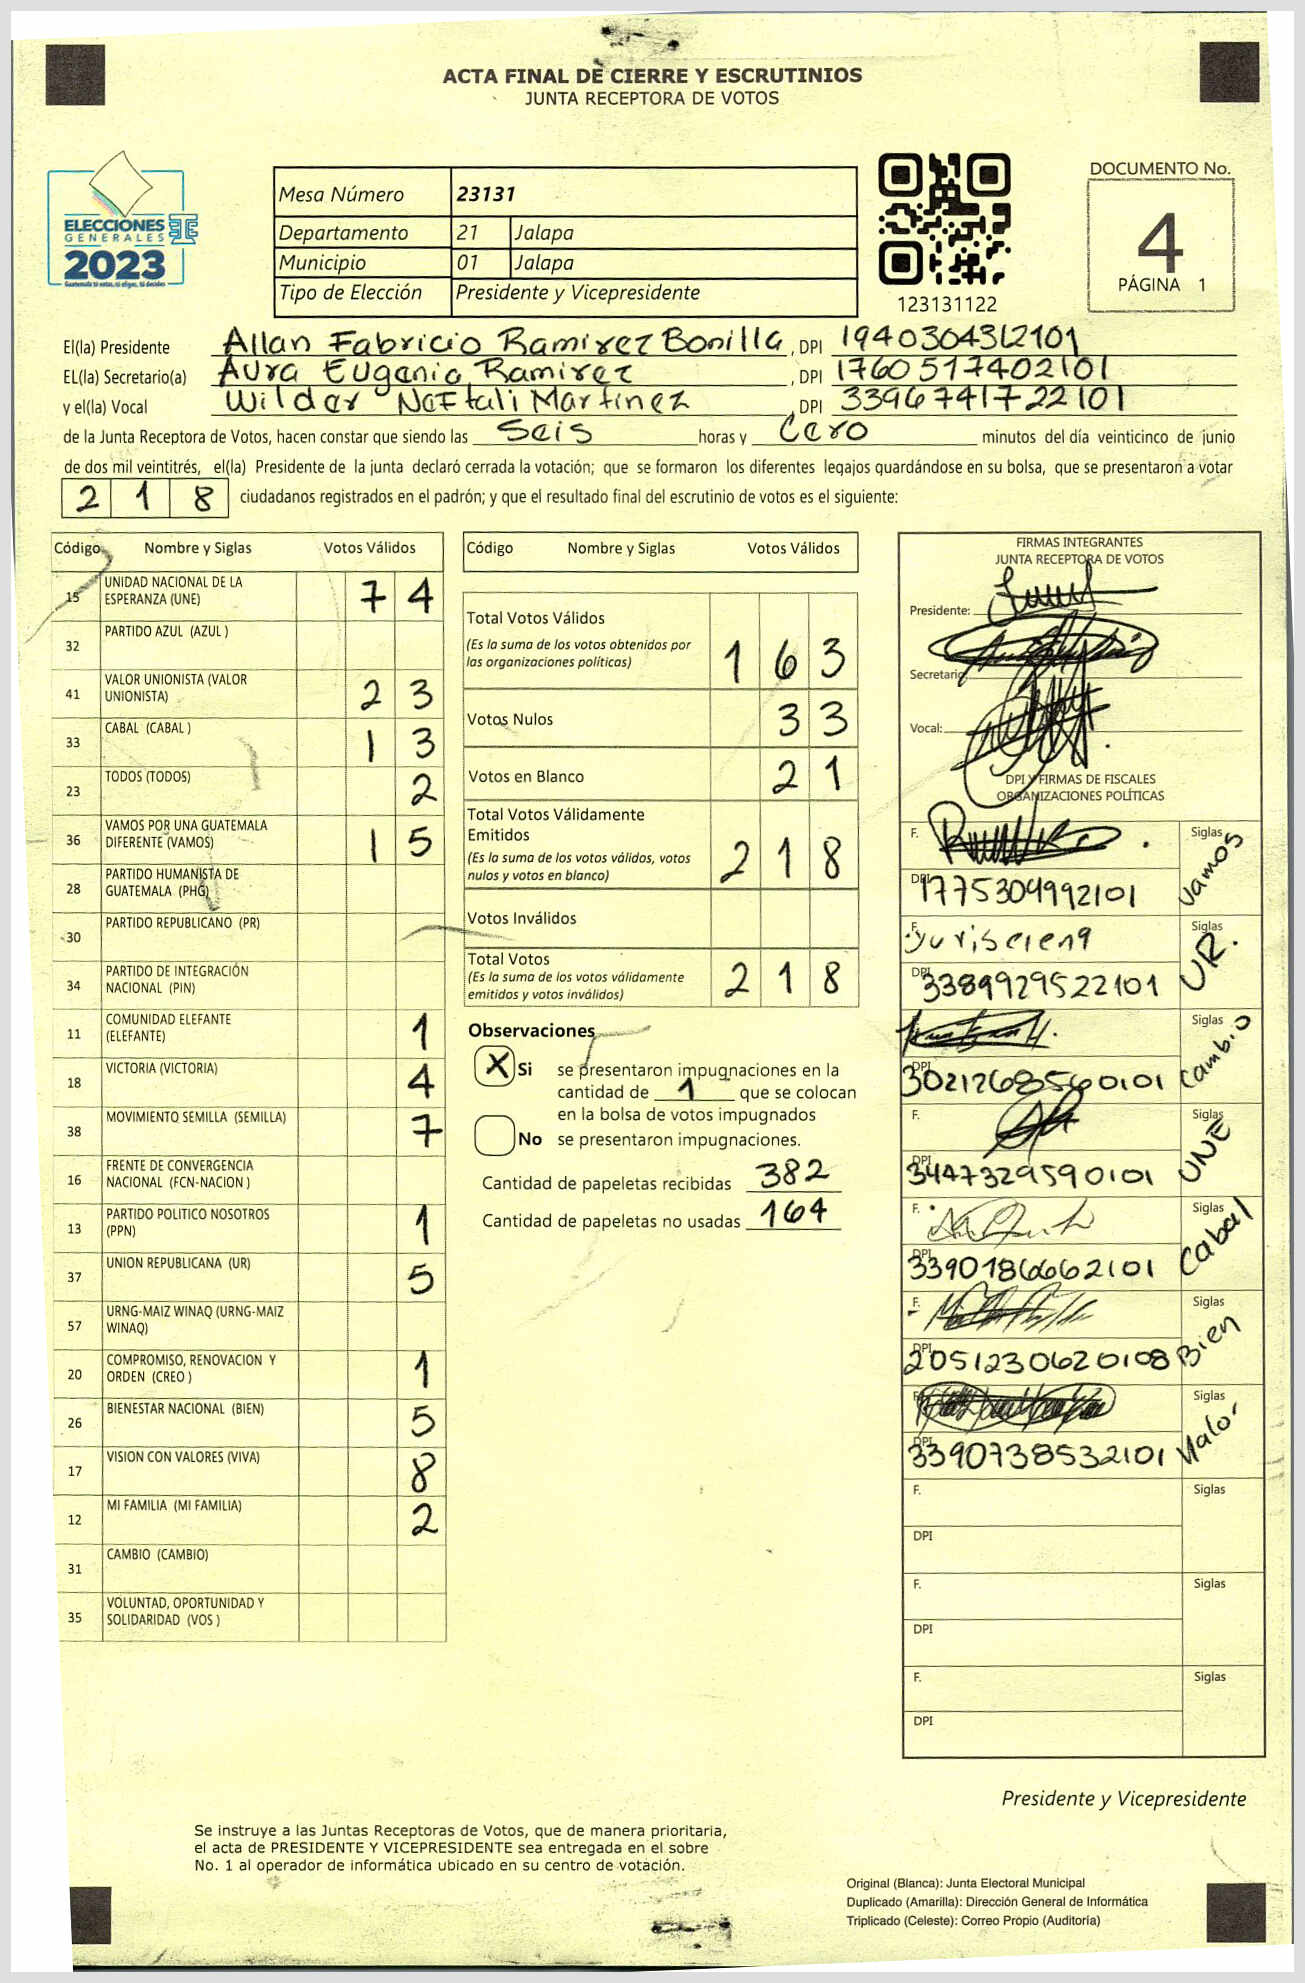 ACTA FINAL DE CIERRE Y ESCRUTINIOS
JUNTA RECEPTORA DE VOTOS
ELECCIONES
GENERALES
2023
Guatemala tú votas, tú eliges, tú decides
Mesa Número 23131
Departamento 21 Jalapa
Municipio 01 Jalapa
Tipo de Elección Presidente y Vicepresidente
123131122
DOCUMENTO No.
4
PÁGINA 1
El(la) Presidente Allan Fabricio Ramirez Bonilla, DPI 1940304312101
EL(la) Secretario(a) Aura Eugenia Ramirez, DPI 1760517402101
y el(la) Vocal Wilder Neftali Martinez, DPI 3396741722101
de la Junta Receptora de Votos, hacen constar que siendo las Seis horas y Cero minutos del día veinticinco de junio
de dos mil veintitrés, el(la) Presidente de la junta declaró cerrada la votación; que se formaron los diferentes legajos quardándose en su bolsa, que se presentaron a votar
218 ciudadanos registrados en el padrón; y que el resultado final del escrutinio de votos es el siguiente:
Código Nombre y Siglas Votos Válidos
15 UNIDAD NACIONAL DE LA ESPERANZA (UNE) 74
32 PARTIDO AZUL (AZUL )
41 VALOR UNIONISTA (VALOR UNIONISTA) 23
33 CABAL (CABAL ) 13
23 TODOS (TODOS) 2
36 VAMOS POR UNA GUATEMALA DIFERENTE (VAMOS) 15
28 PARTIDO HUMANISTA DE GUATEMALA (PHG)
30 PARTIDO REPUBLICANO (PR)
34 PARTIDO DE INTEGRACIÓN NACIONAL (PIN)
11 COMUNIDAD ELEFANTE (ELEFANTE) 1
18 VICTORIA (VICTORIA) 4
38 MOVIMIENTO SEMILLA (SEMILLA) 7
16 FRENTE DE CONVERGENCIA NACIONAL (FCN-NACION )
13 PARTIDO POLITICO NOSOTROS (PPN) 1
37 UNION REPUBLICANA (UR) 5
57 URNG-MAIZ WINAQ (URNG-MAIZ WINAQ)
20 COMPROMISO, RENOVACION Y ORDEN (CREO ) 1
26 BIENESTAR NACIONAL (BIEN) 5
17 VISION CON VALORES (VIVA) 8
12 MI FAMILIA (MI FAMILIA) 2
31 CAMBIO (CAMBIO)
35 VOLUNTAD, OPORTUNIDAD Y SOLIDARIDAD (VOS )
Código Nombre y Siglas Votos Válidos
Total Votos Válidos 163
(Es la suma de los votos obtenidos por
las organizaciones políticas)
Votos Nulos 33
Votos en Blanco 21
Total Votos Válidamente
Emitidos 218
(Es la suma de los votos válidos, votos
nulos y votos en blanco)
Votos Inválidos
Total Votos 218
(Es la suma de los votos válidamente
emitidos y votos inválidos)
Observaciones
X Si se presentaron impugnaciones en la
cantidad de 1 que se colocan
en la bolsa de votos impugnados
No se presentaron impugnaciones.
Cantidad de papeletas recibidas 382
Cantidad de papeletas no usadas 164
FIRMAS INTEGRANTES
JUNTA RECEPTORA DE VOTOS
Presidente:
Secretario
Vocal:
DPI Y FIRMAS DE FISCALES
ORGANIZACIONES POLÍTICAS
F. Siglas Vamos
DPI 1775304992101
F. Siglas UR.
DPI 3389929522101
Siglas Cambio
DPI 3021268560101
F. Siglas UNE
DPI 3447329590101
F. Siglas Cabal
DPI 3390186662101
F. Siglas Bien
DPI 2051230620108
F. Siglas Valor
DPI 3390738532101
F. Siglas
DPI
F. Siglas
DPI
F. Siglas
DPI
Presidente y Vicepresidente
Se instruye a las Juntas Receptoras de Votos, que de manera prioritaria,
el acta de PRESIDENTE Y VICEPRESIDENTE sea entregada en el sobre
No. 1 al operador de informática ubicado en su centro de votación.
Original (Blanca): Junta Electoral Municipal
Duplicado (Amarilla): Dirección General de Informática
Triplicado (Celeste): Correo Propio (Auditoría)